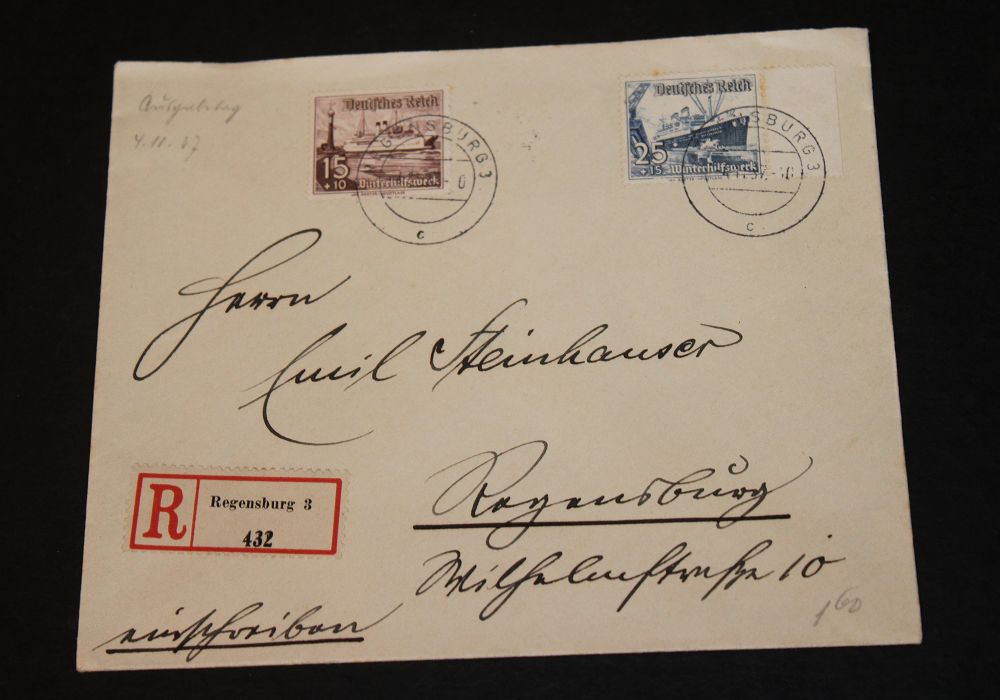 Ausgabetag
4.11.37
Deutsches Reich
15
+10 Winterhilfswerk
REGENSBURG 3
c
Deutsches Reich
25
+15 Winterhilfswerk
REGENSBURG 3
c
Herrn
Emil Steinhauser
Regensburg
Wilhelmstraße 10
R Regensburg 3
432
einschreiben
160